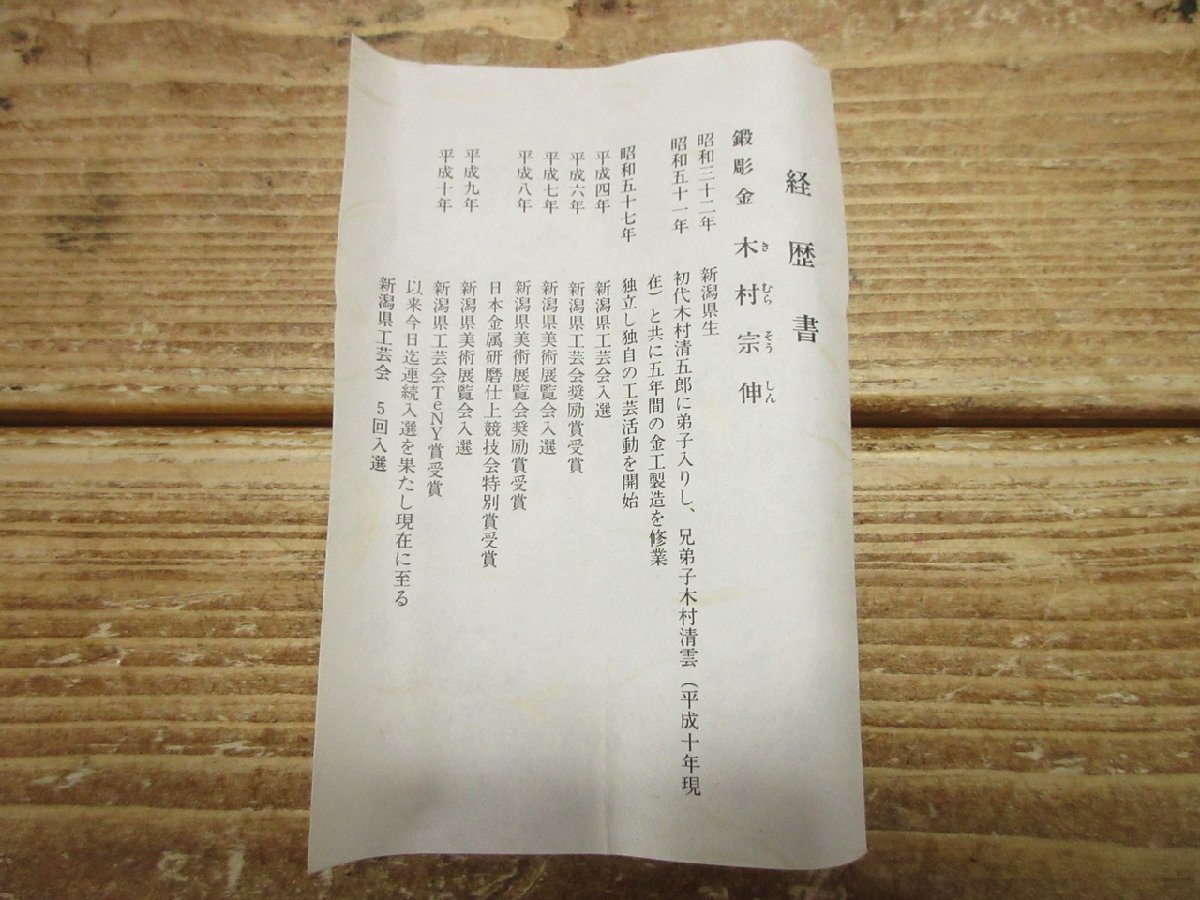 経歴書
鍛彫金 木村宗伸
き むら そう しん
昭和三十二年 新潟県生
昭和五十一年 初代木村清五郎に弟子入りし、兄弟子木村清雲(平成十年現
在)と共に五年間の金工製造を修業
昭和五十七年 独立し独自の工芸活動を開始
平成四年 新潟県工芸会入選
平成六年 新潟県工芸会奨励賞受賞
平成七年 新潟県美術展覧会入選
平成八年 新潟県美術展覧会奨励賞受賞
日本金属研磨仕上競技会特別賞受賞
平成九年 新潟県美術展覧会入選
平成十年 新潟県工芸会TeNY賞受賞
以来今日迄連続入選を果たし現在に至る
新潟県工芸会 5回入選